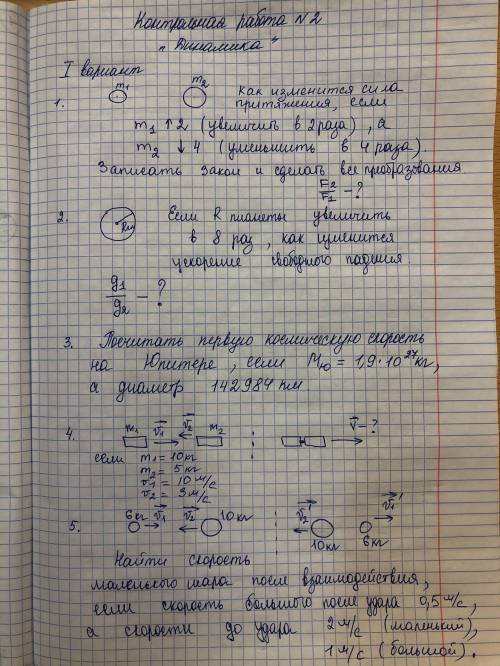 Контрольная работа №2
"Динамика"
I вариант
1. m₁ m₂ как изменится сила
притяжения, если
m₁ ↑ 2 (увеличить в 2 раза), а
m₂ ↓ 4 (уменьшить в 4 раза).
Записать закон и сделать все преобразования.
F₂/F₁ - ?
2. Rпл Если R планеты увеличить
в 8 раз, как изменится
ускорение свободного падения.
g₁/g₂ - ?
3. Посчитать первую космическую скорость
на Юпитере, если Mю = 1,9·10²⁷кг,
а диаметр 142984 км
4. m₁ v₁ v₂ m₂ v - ?
если m₁ = 10кг
m₂ = 5 кг
v₁ = 10 м/с
v₂ = 3м/с
5. 6кг v₁ v₂ 10кг v₂' 10кг v₁' 6кг
Найти скорость
маленького шара после взаимодействия,
если скорость большого после удара 0,5 м/с,
а скорости до удара 2 м/с (маленький),
1 м/с (большой).